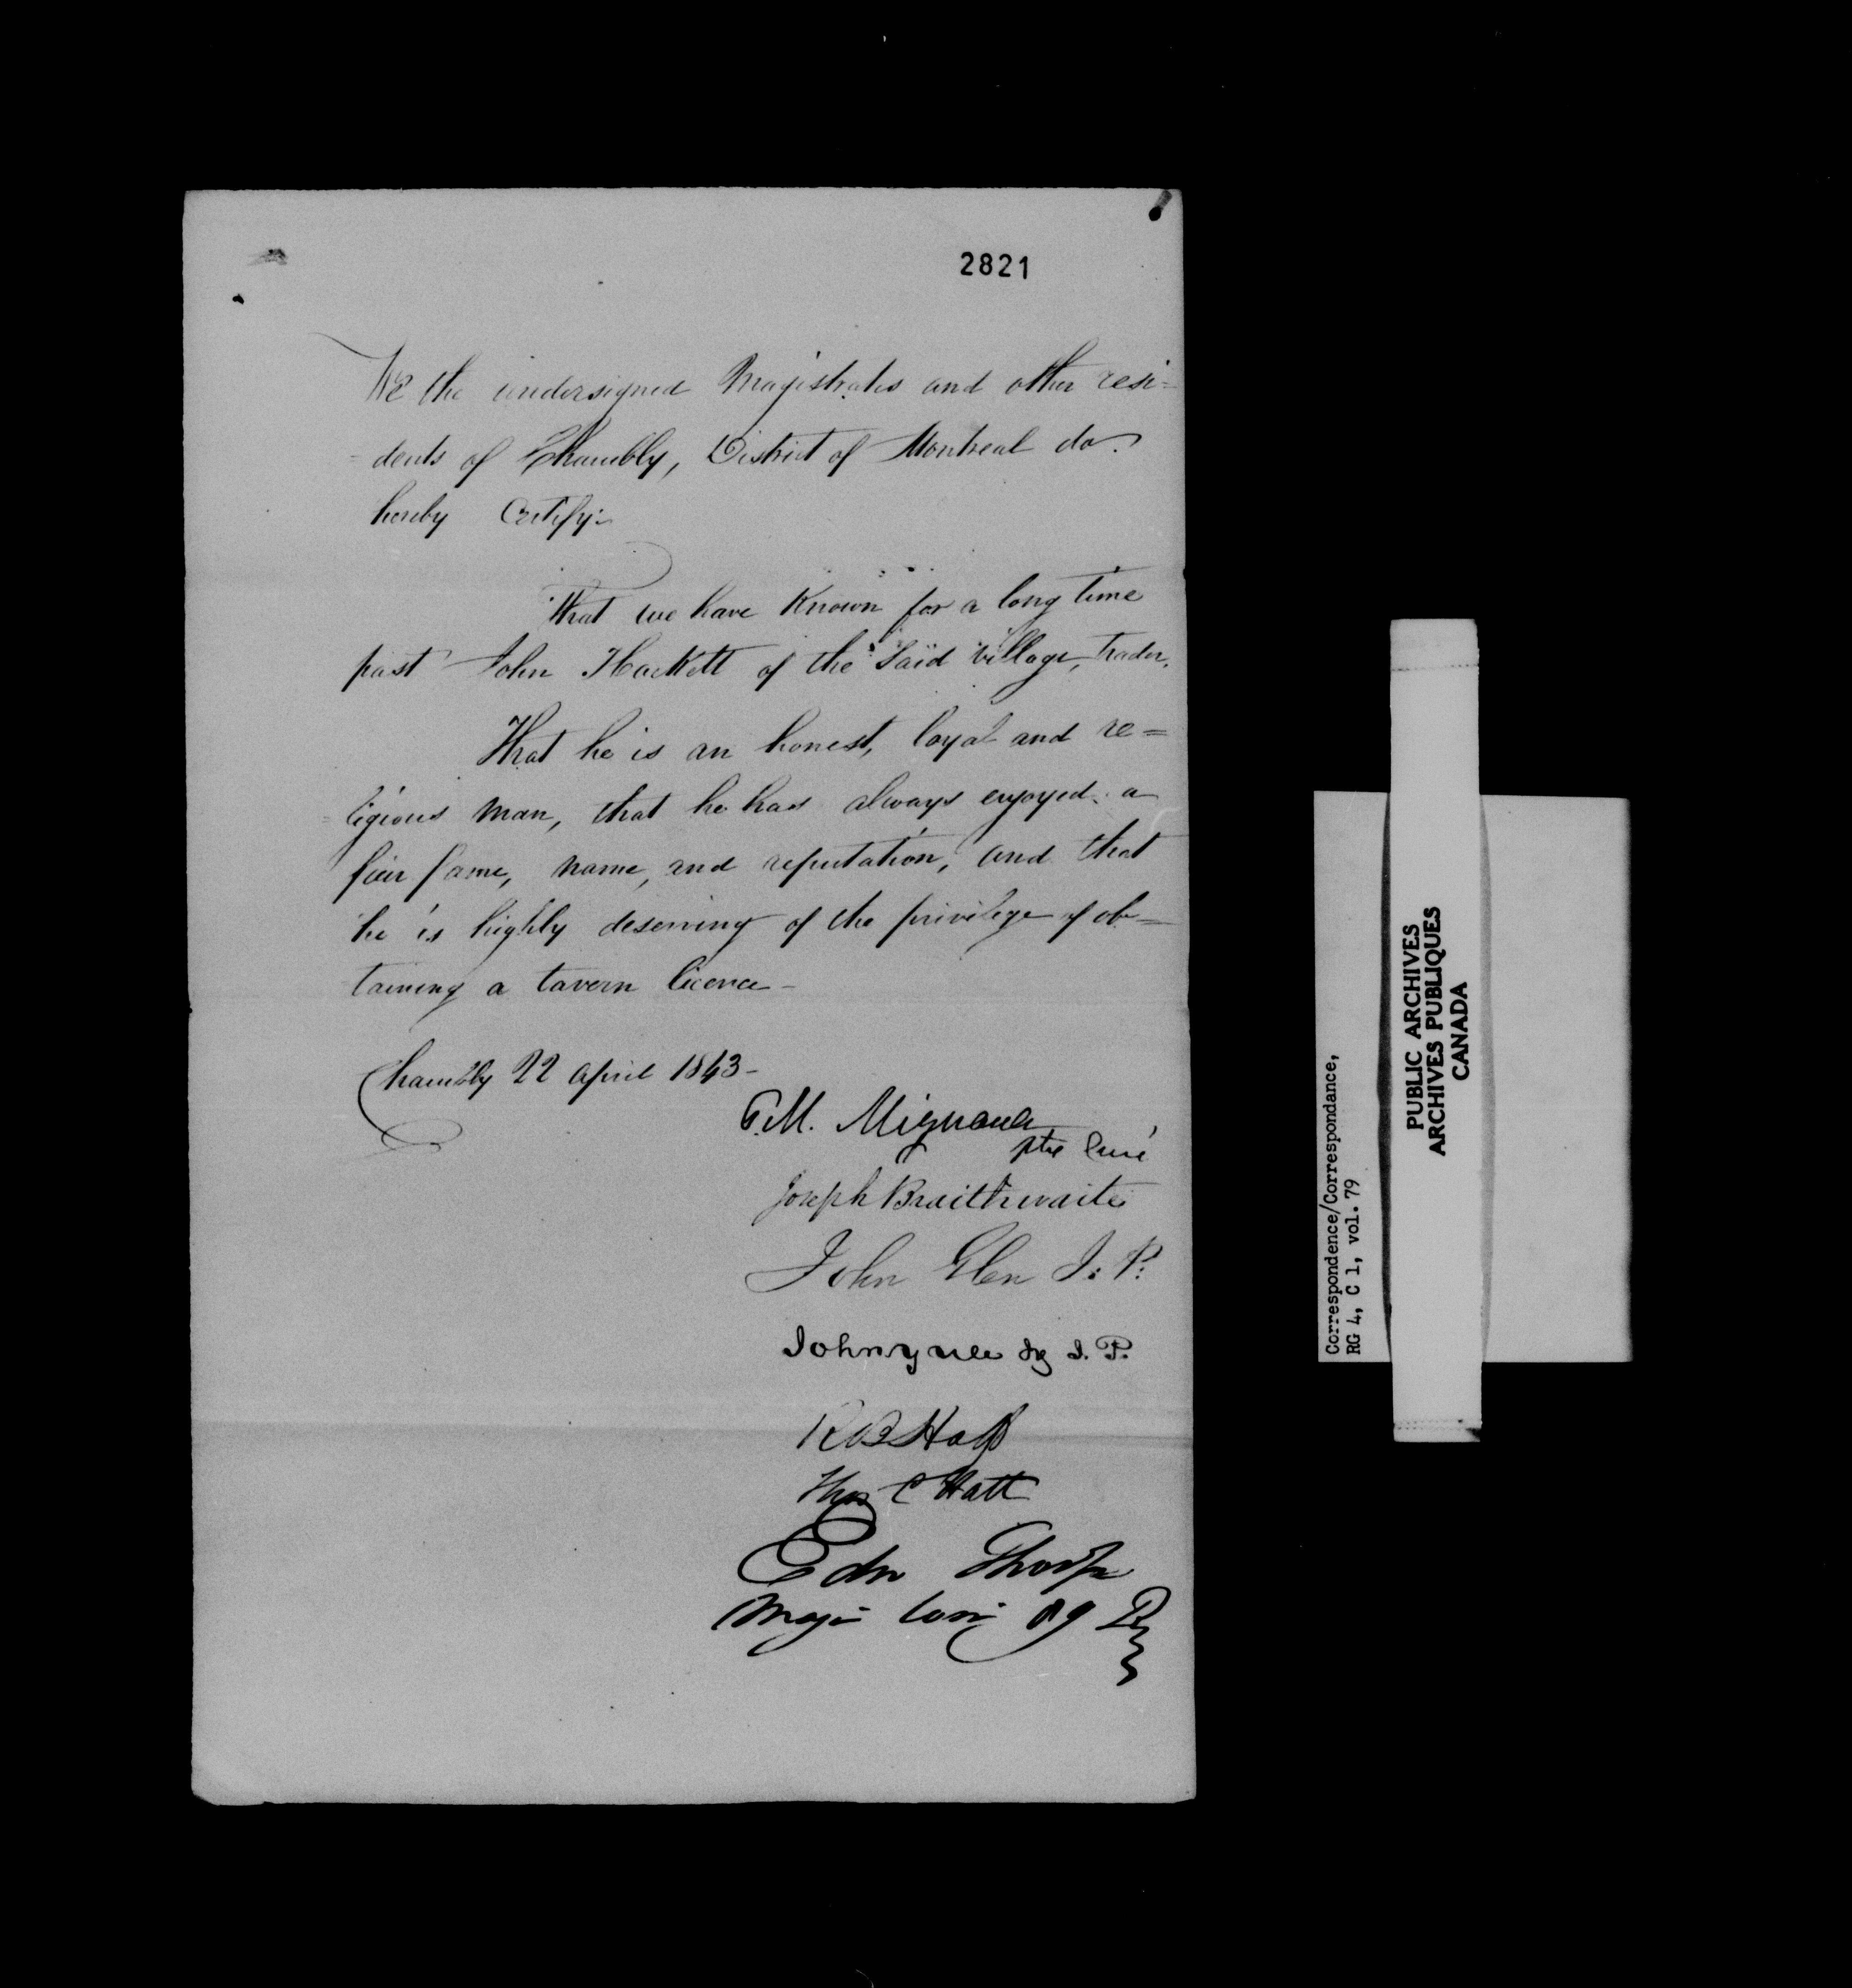 2821
We the undersigned Magistrates and other resi=
=dents of Chambly, District of Montreal do
hereby Certify:
That we have Known for a long time
past John Hackett of the Said Village, trader.
That he is an honest, loyal and re=
=ligious man, that he has always enjoyed a
fair fame, name, and reputation, and that
he is highly deserving of the privilege of ob=
taining a tavern licence-
Chambly 22 April 1843-
P.M. Mignault
ptre Curé
Joseph Braithwaite
John Glen J: P:
John yule J. P.
Thos C Hatt
Edw Thorp
Major
Correspondence/Correspondance,
RG 4, C 1, vol. 79
PUBLIC ARCHIVES
ARCHIVES PUBLIQUES
CANADA